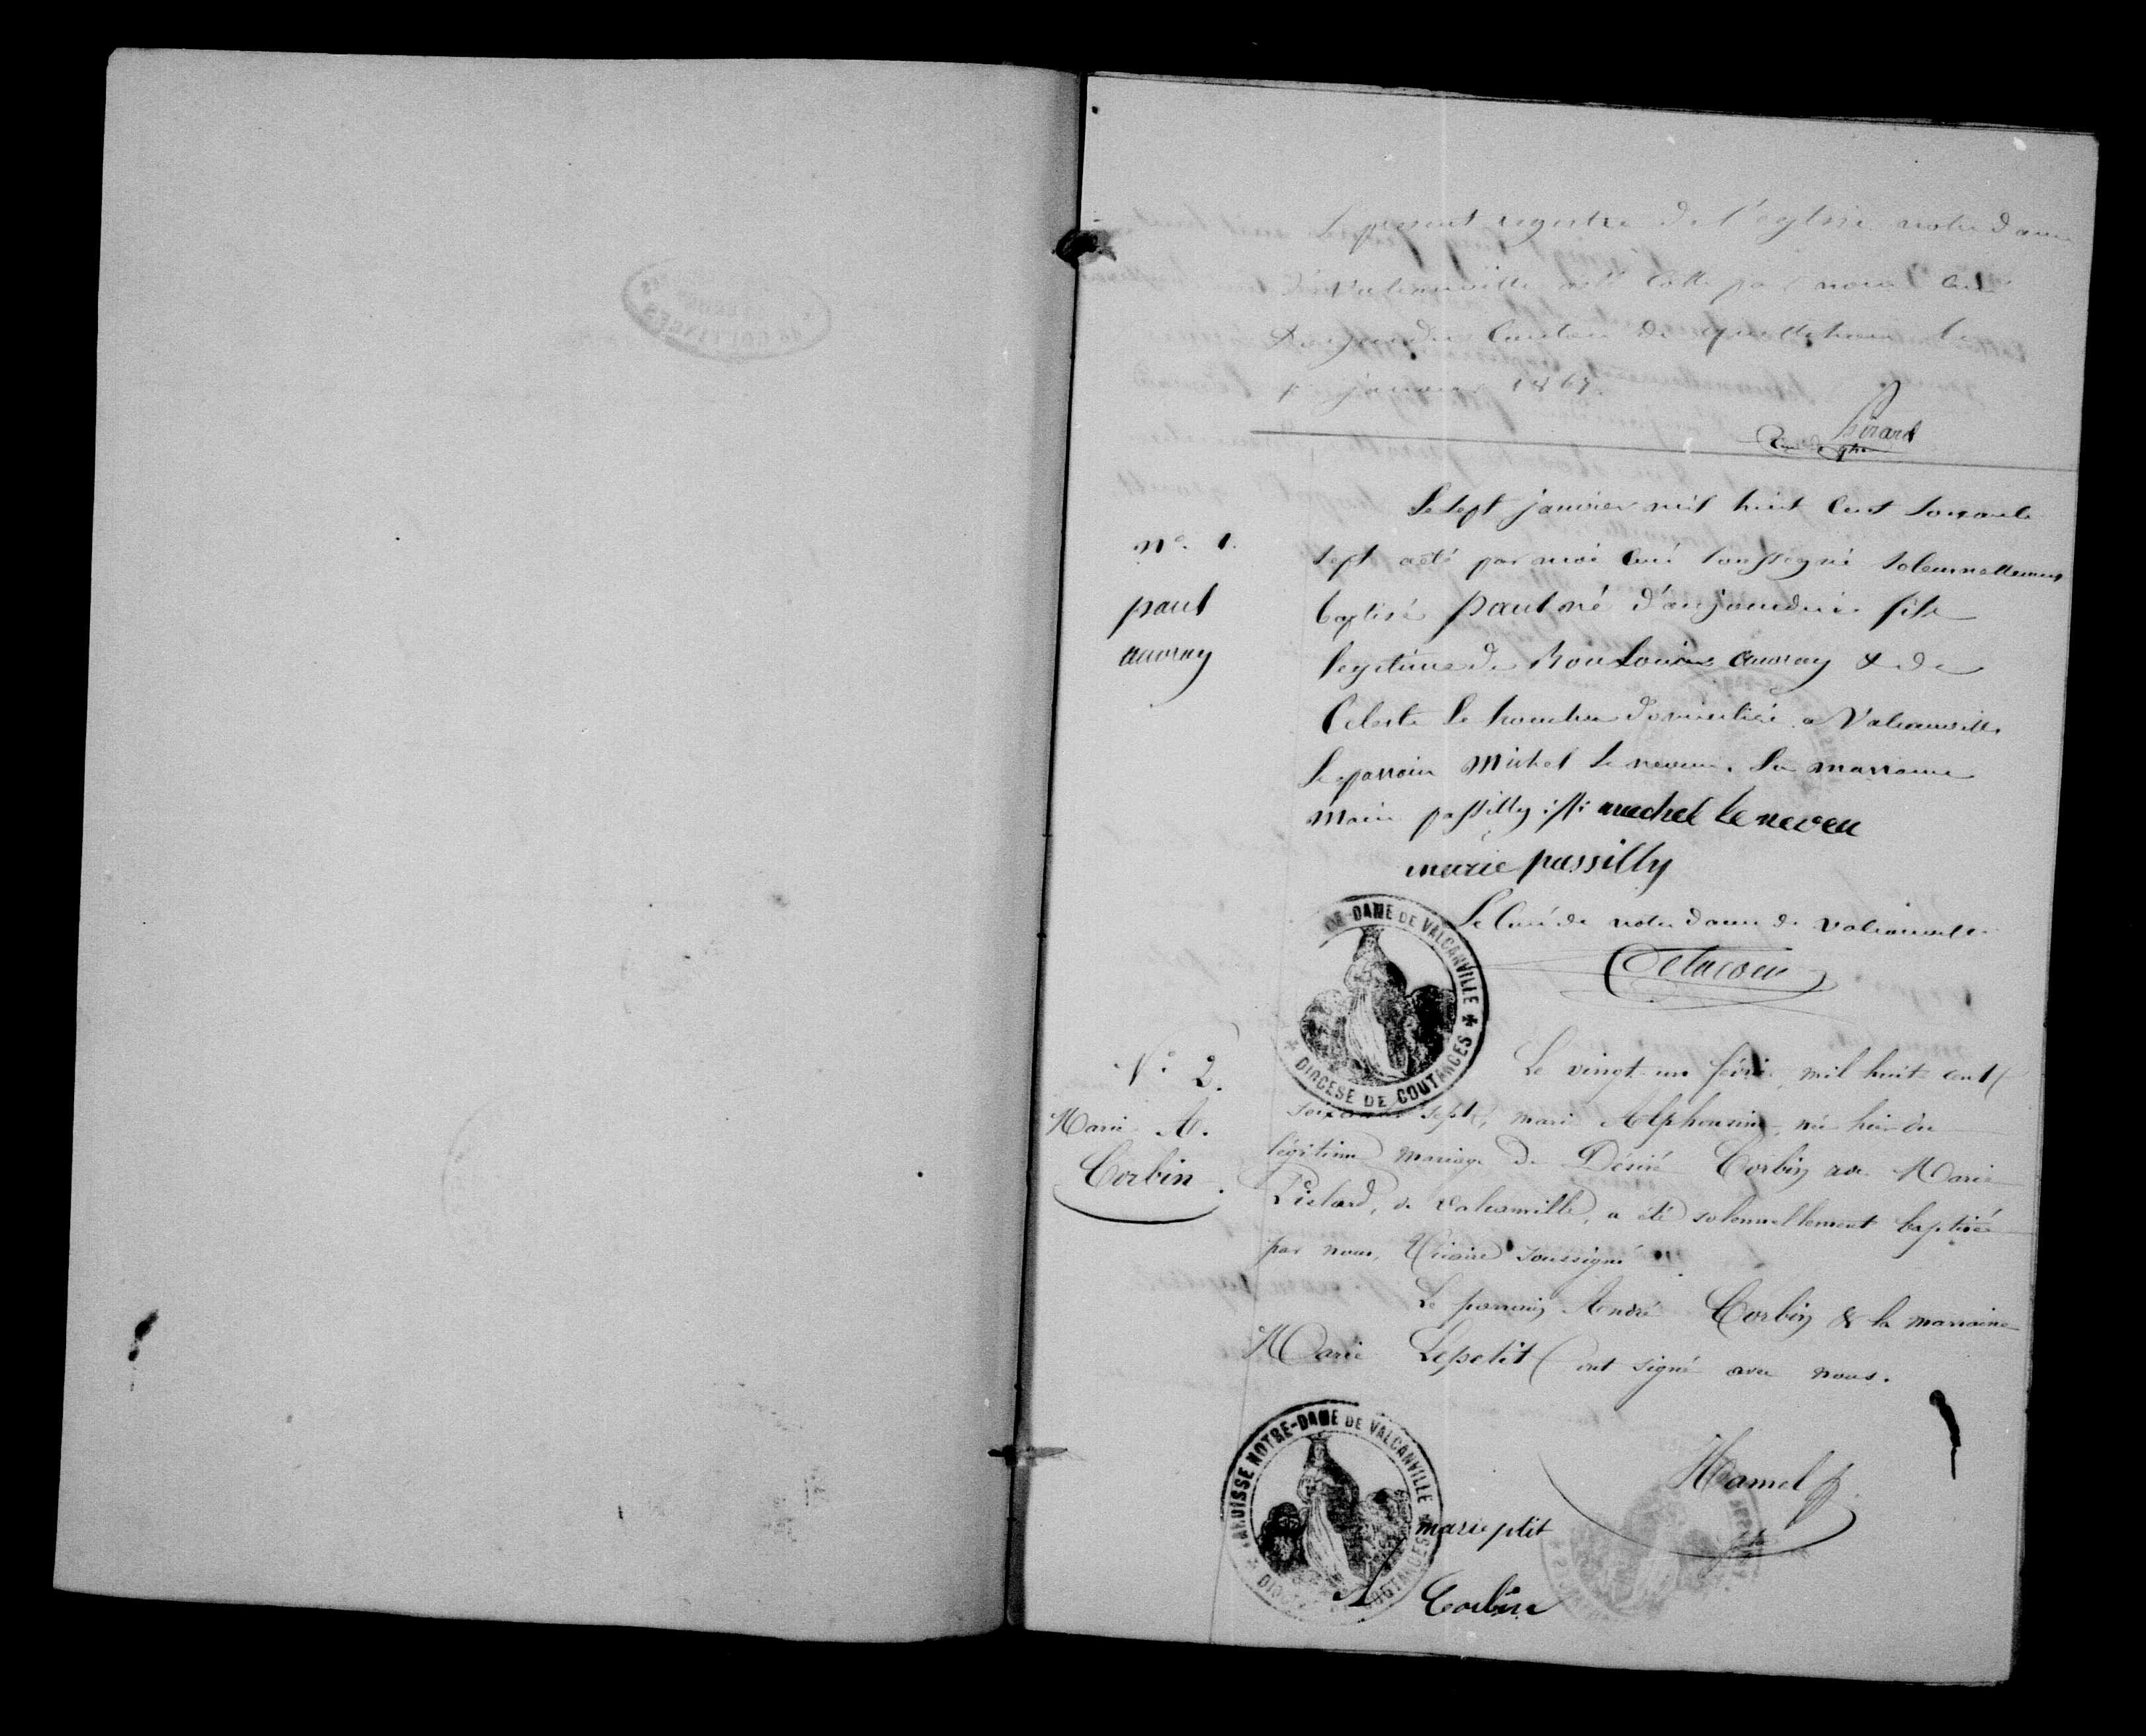 Le present registre de l'eglise notre dame
de Valcanville a été Cotté par nous Curé
Doyen du Canton de quettehou le
janvier 1867.
Le sept janvier mil huit Cent soixante
n° 1.
sept a été par moi Curé soussigné solennellement
paul
baptisé paul né d'aujourdhui fils
auvray
legitime de Bon Louis auvray & de
Celeste le domicilié a Valcanville
Le parrain Michel Le neveu. La marraine
Marie passilly
michel le neveu
marie passilly
Le Curé de notre dame de valcanville
DAME DE VALCANVILLE
DIOCESE DE COUTANCES
N° 2.
Le vingt-un février mil huit cent
soixante sept, marie Alphonsine, née hier du
Marie A.
légitime mariage de Désiré Corbin avec Marie
Corbin.
de Valcanville, a été solennellement baptisée
par nous, Vicaire soussigné.
Le parrain André Corbin & la marraine
Marie Lepetit ont signé avec nous.
PAROISSE NOTRE-DAME DE VALCANVILLE
Hamel
marie ptit
A Corbin